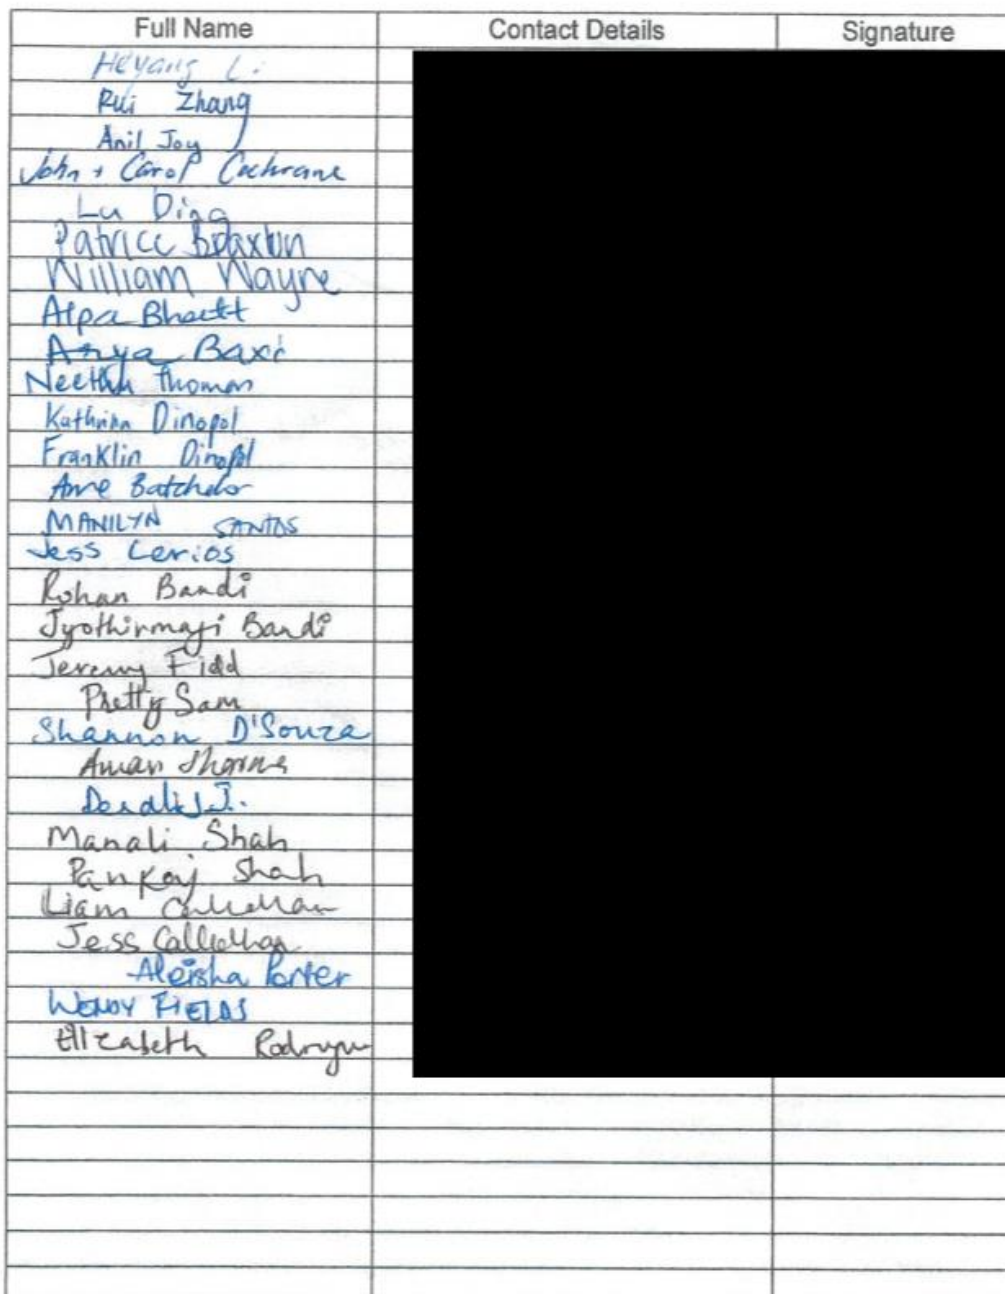 Full Name Contact Details Signature
Heyang Li
Rui Zhang
Anil Joy
John + Carol Cochrane
Lu Ding
Patrice Braxton
William Wayne
Alpa Bhatt
Anya Baxi
Neethu Thomas
Dinopol
Franklin Dinopol
Anne Batchelor
MANILYN SANTOS
Jess Lerios
Rohan Bandi
Jyothirmayi Bandi
Jeremy Field
Pretty Sam
Shannon D'Souza
Aman Sharma
Manali Shah
Pankaj Shah
Liam
Jess
Aleisha Porter
WENDY FIELDS
Elizabeth